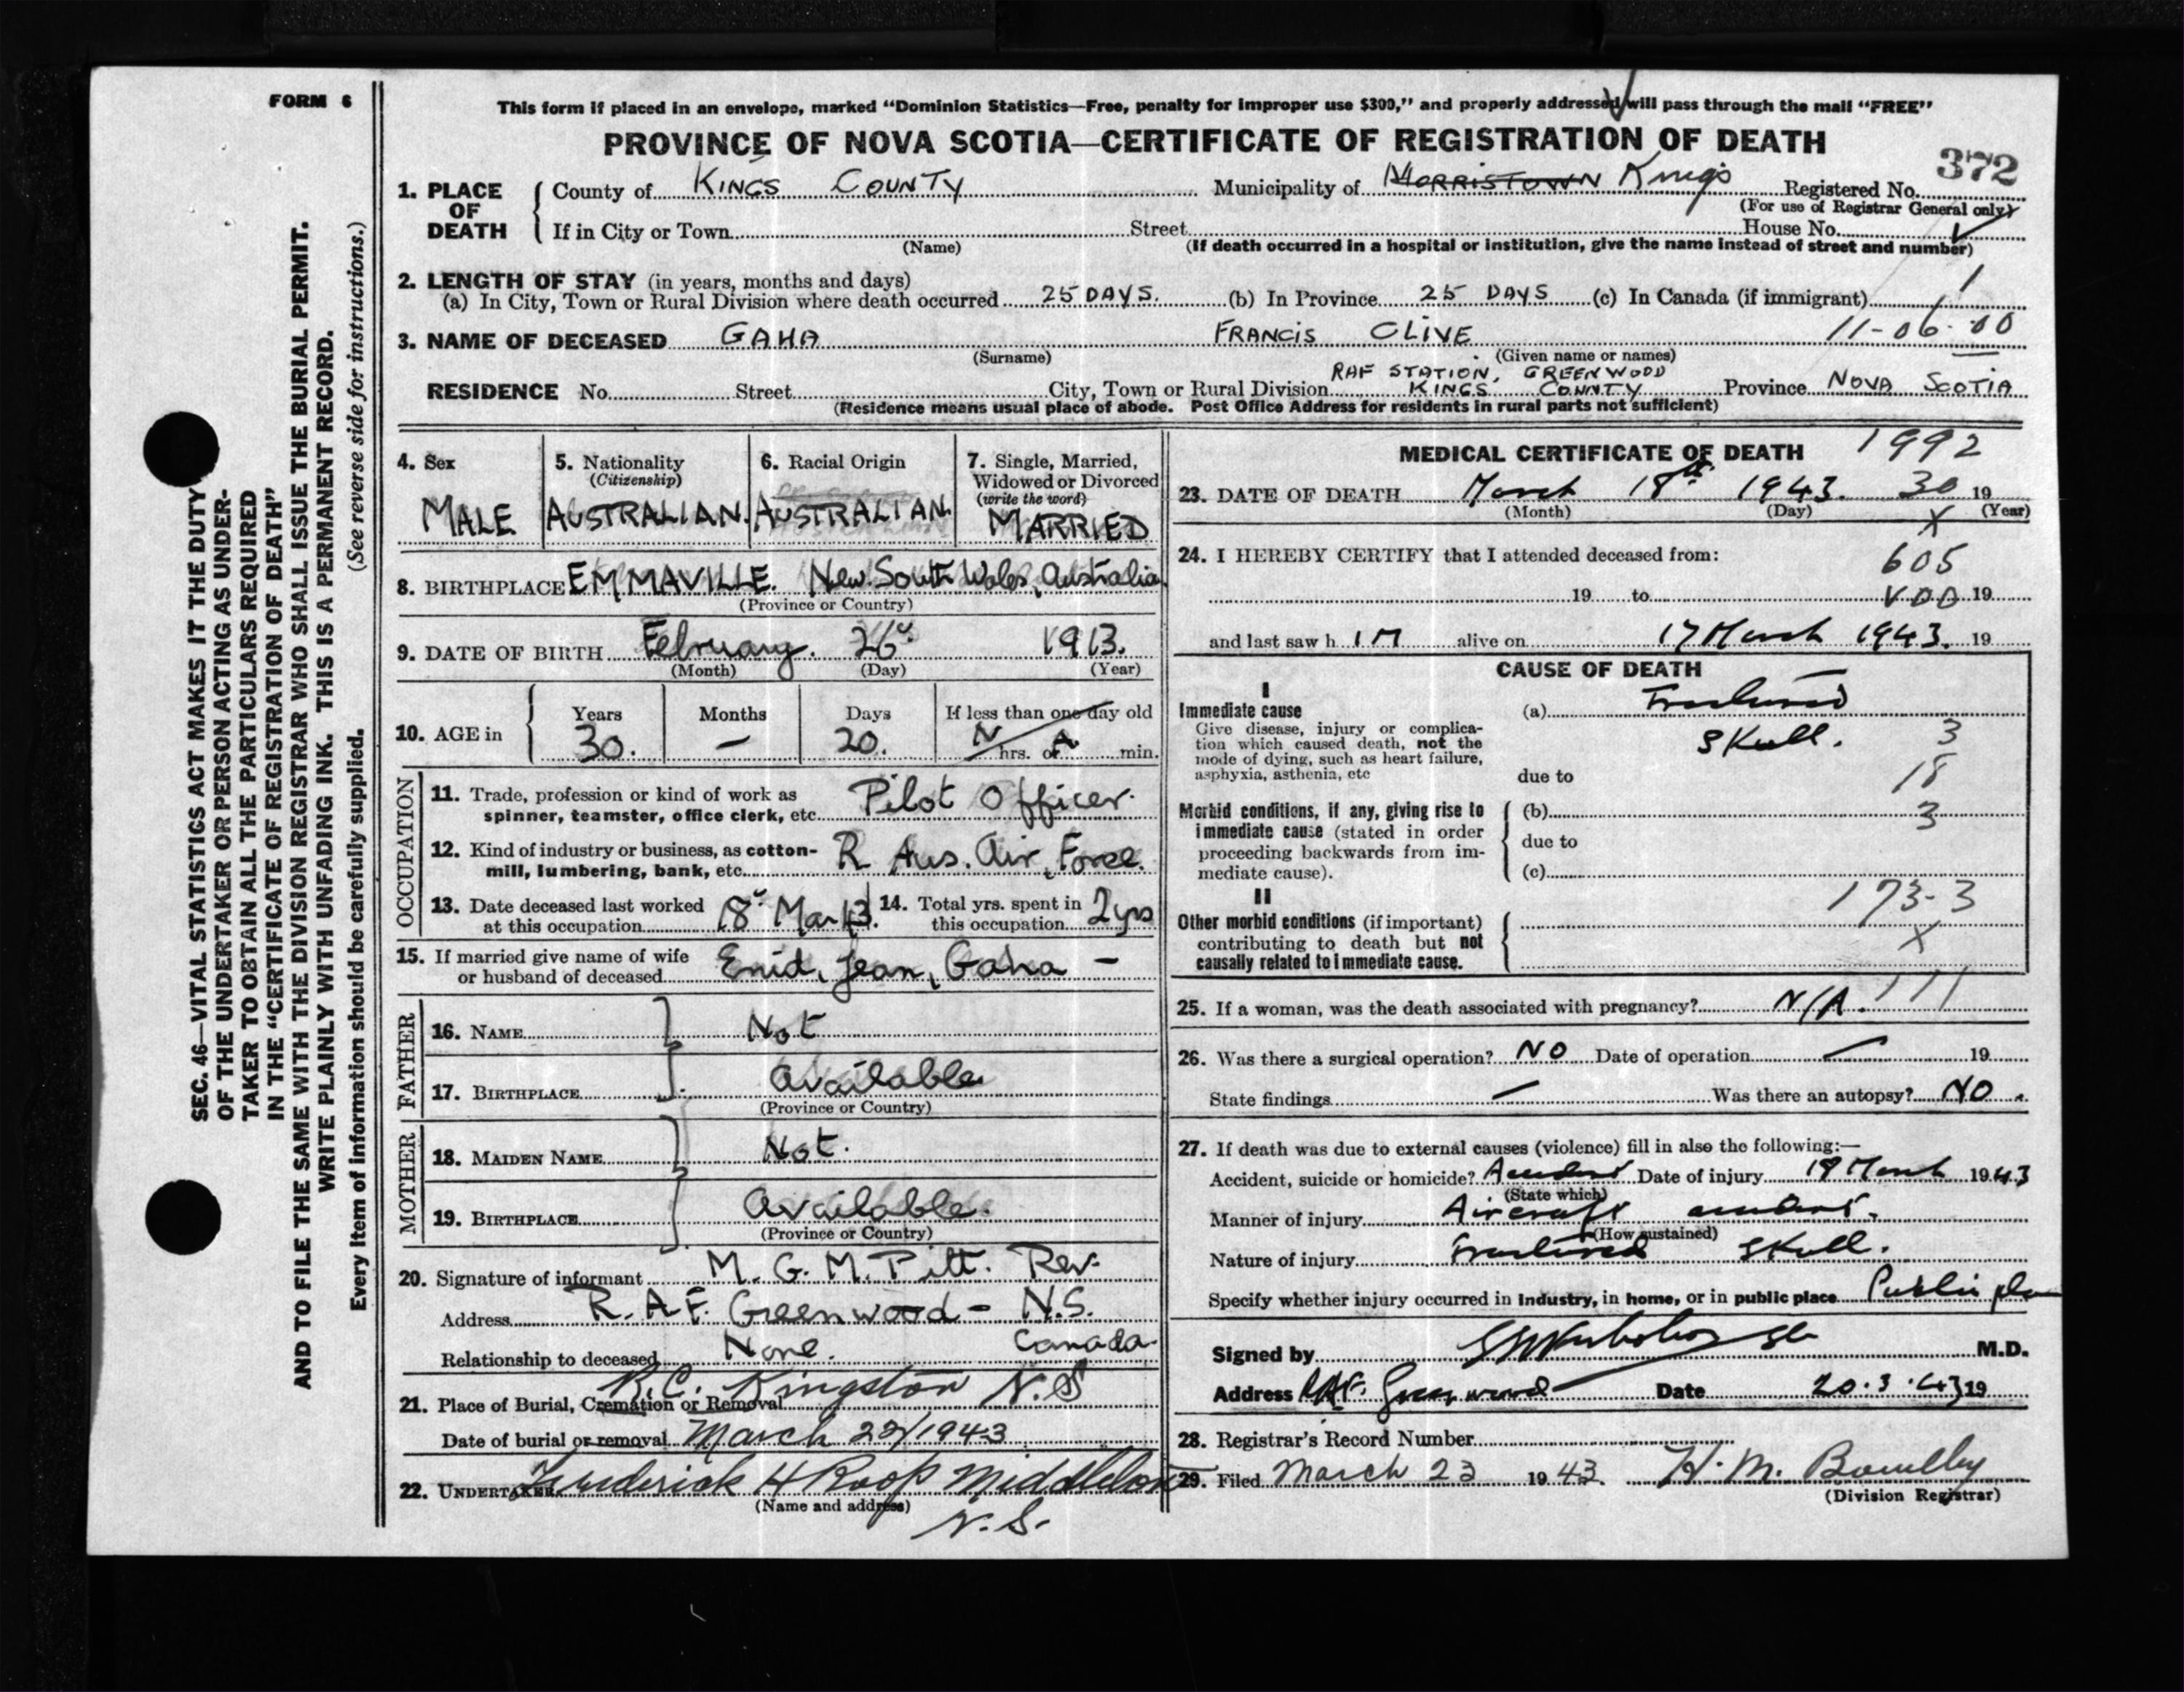 FORM 6
This form if placed in an envelope, marked “Dominion Statistics—Free, penalty for improper use $300,” and properly addressed will pass through the mail “FREE”
PROVINCE OF NOVA SCOTIA—CERTIFICATE OF REGISTRATION OF DEATH
372
1. PLACE OF DEATH
County of KINGS COUNTY Municipality of MORRISTOWN Kings Registered No.
(For use of Registrar General only)
If in City or Town Street House No.
(Name) (If death occurred in a hospital or institution, give the name instead of street and number)
2. LENGTH OF STAY (in years, months and days)
(a) In City, Town or Rural Division where death occurred 25 DAYS. (b) In Province 25 DAYS (c) In Canada (if immigrant) 1
3. NAME OF DECEASED GAHA FRANCIS CLIVE 11-06-00
(Surname) (Given name or names)
RAF STATION, GREENWOOD
RESIDENCE No. Street City, Town or Rural Division KINGS COUNTY Province NOVA SCOTIA
(Residence means usual place of abode. Post Office Address for residents in rural parts not sufficient)
4. Sex
MALE
5. Nationality
(Citizenship)
AUSTRALIAN.
6. Racial Origin
AUSTRALIAN.
7. Single, Married,
Widowed or Divorced
(write the word)
MARRIED
8. BIRTHPLACE EMMAVILLE. New South Wales, Australia
(Province or Country)
9. DATE OF BIRTH February. 26 1913.
(Month) (Day) (Year)
10. AGE in
Years Months Days If less than one day old
30. — 20. N A hrs. or min.
OCCUPATION
11. Trade, profession or kind of work as
spinner, teamster, office clerk, etc. Pilot Officer.
12. Kind of industry or business, as cotton-
mill, lumbering, bank, etc. R Aus. Air Force.
13. Date deceased last worked
at this occupation 18 Mar 43.
14. Total yrs. spent in
this occupation 2 yrs
15. If married give name of wife
or husband of deceased Enid, Jean, Gaha —
FATHER
16. NAME Not
17. BIRTHPLACE Available
(Province or Country)
MOTHER
18. MAIDEN NAME Not.
19. BIRTHPLACE Available.
(Province or Country)
20. Signature of informant M. G. M. Pitt. Rev.
Address R.A.F. Greenwood - N.S.
Canada
Relationship to deceased None.
21. Place of Burial, Cremation or Removal R.C. Kingston N.S
Date of burial or removal March 22/1943
22. UNDERTAKER Frederick H Roop Middleton
(Name and address)
N.S.
MEDICAL CERTIFICATE OF DEATH 1992
23. DATE OF DEATH March 18th 1943. 30 19
(Month) (Day) (Year)
X
24. I HEREBY CERTIFY that I attended deceased from:
605
19 to 19
and last saw h IM alive on 17 March 1943. 19
CAUSE OF DEATH
I
Immediate cause
Give disease, injury or complica-
tion which caused death, not the
mode of dying, such as heart failure,
asphyxia, asthenia, etc
(a) Fractured
Skull.
3
due to
18
Morbid conditions, if any, giving rise to
immediate cause (stated in order
proceeding backwards from im-
mediate cause).
(b)
3
due to
(c)
II
173-3
Other morbid conditions (if important)
contributing to death but not
causally related to immediate cause.
X
25. If a woman, was the death associated with pregnancy? N/A. 111
26. Was there a surgical operation? NO Date of operation — 19
State findings — Was there an autopsy? NO.
27. If death was due to external causes (violence) fill in also the following:—
Accident, suicide or homicide? Accident Date of injury 18 March 1943
(State which)
Manner of injury Aircraft accident.
(How sustained)
Nature of injury Fractured Skull.
Specify whether injury occurred in industry, in home, or in public place Public
Signed by M.D.
Address Greenwood Date 20.3.43 19
28. Registrar's Record Number
29. Filed March 23 1943. H. M.
(Division Registrar)
SEC. 46—VITAL STATISTICS ACT MAKES IT THE DUTY
OF THE UNDERTAKER OR PERSON ACTING AS UNDER-
TAKER TO OBTAIN ALL THE PARTICULARS REQUIRED
IN THE “CERTIFICATE OF REGISTRATION OF DEATH”
AND TO FILE THE SAME WITH THE DIVISION REGISTRAR WHO SHALL ISSUE THE BURIAL PERMIT.
WRITE PLAINLY WITH UNFADING INK. THIS IS A PERMANENT RECORD.
Every item of information should be carefully supplied. (See reverse side for instructions.)